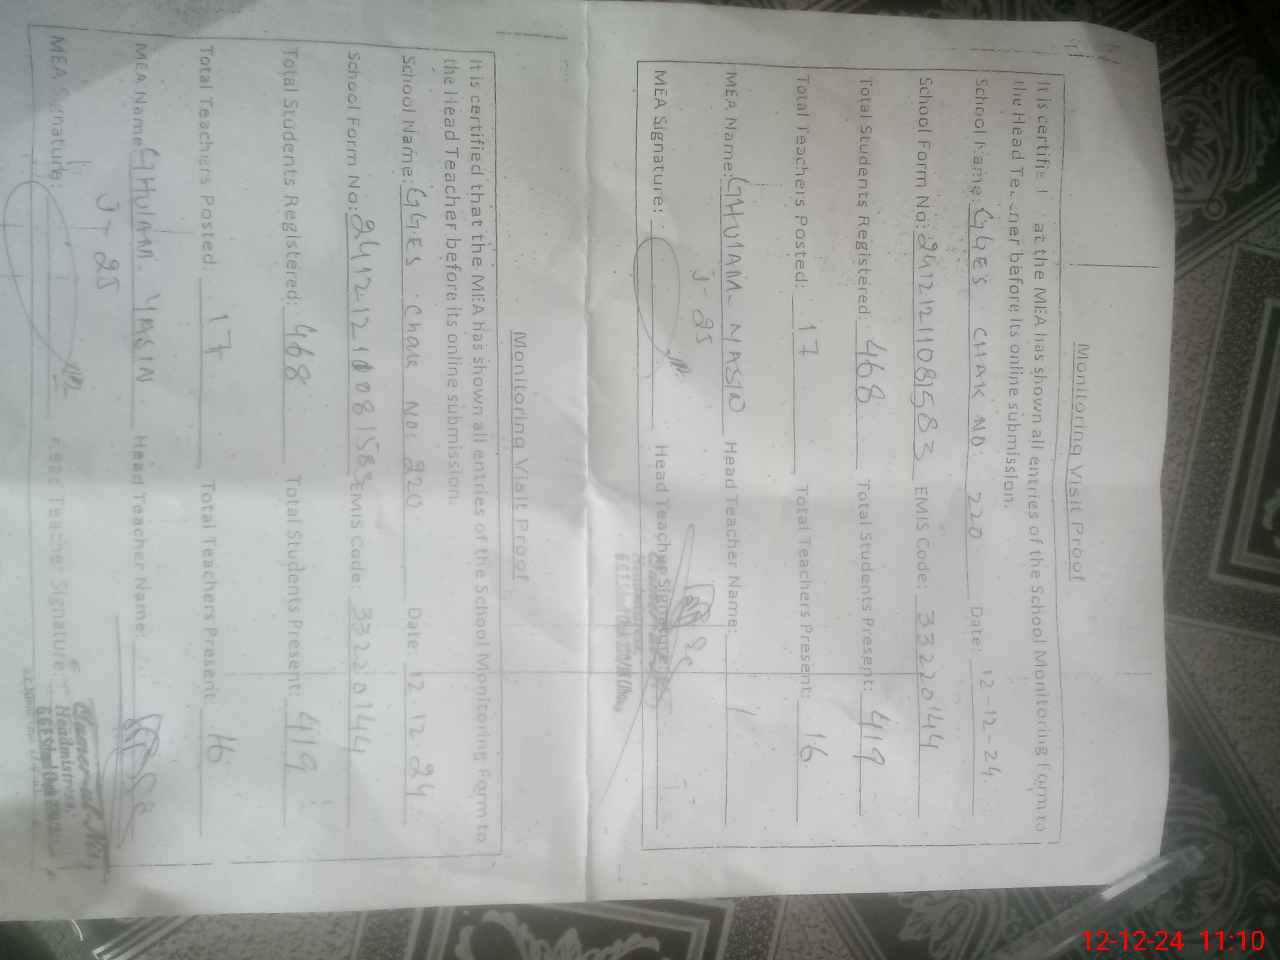 Monitoring Visit Proof
It is certified that the MEA has shown all entries of the School Monitoring Form to
the Head Teacher before its online submission.
School Name: GGES CHAK NO: 220 Date: 12-12-24
School Form No: 24121211081583 EMIS Code: 33220144
Total Students Registered: 468 Total Students Present: 419
Total Teachers Posted: 17 Total Teachers Present: 16
MEA Name: GHULAM YASIN Head Teacher Name:
J-25
MEA Signature: Head Teacher Signature
Monitoring Visit Proof
It is certified that the MEA has shown all entries of the School Monitoring Form to
the Head Teacher before its online submission.
School Name: GGES Chak No: 220 Date: 12.12.24
School Form No: EMIS Code: 33220144
Total Students Registered: 468 Total Students Present: 419
Total Teachers Posted: 17 Total Teachers Present: 16
MEA Name: GHULAM YASIN Head Teacher Name:
J-25
MEA Signature: Head Teacher Signature:
Headmistress
12-12-24 11:10